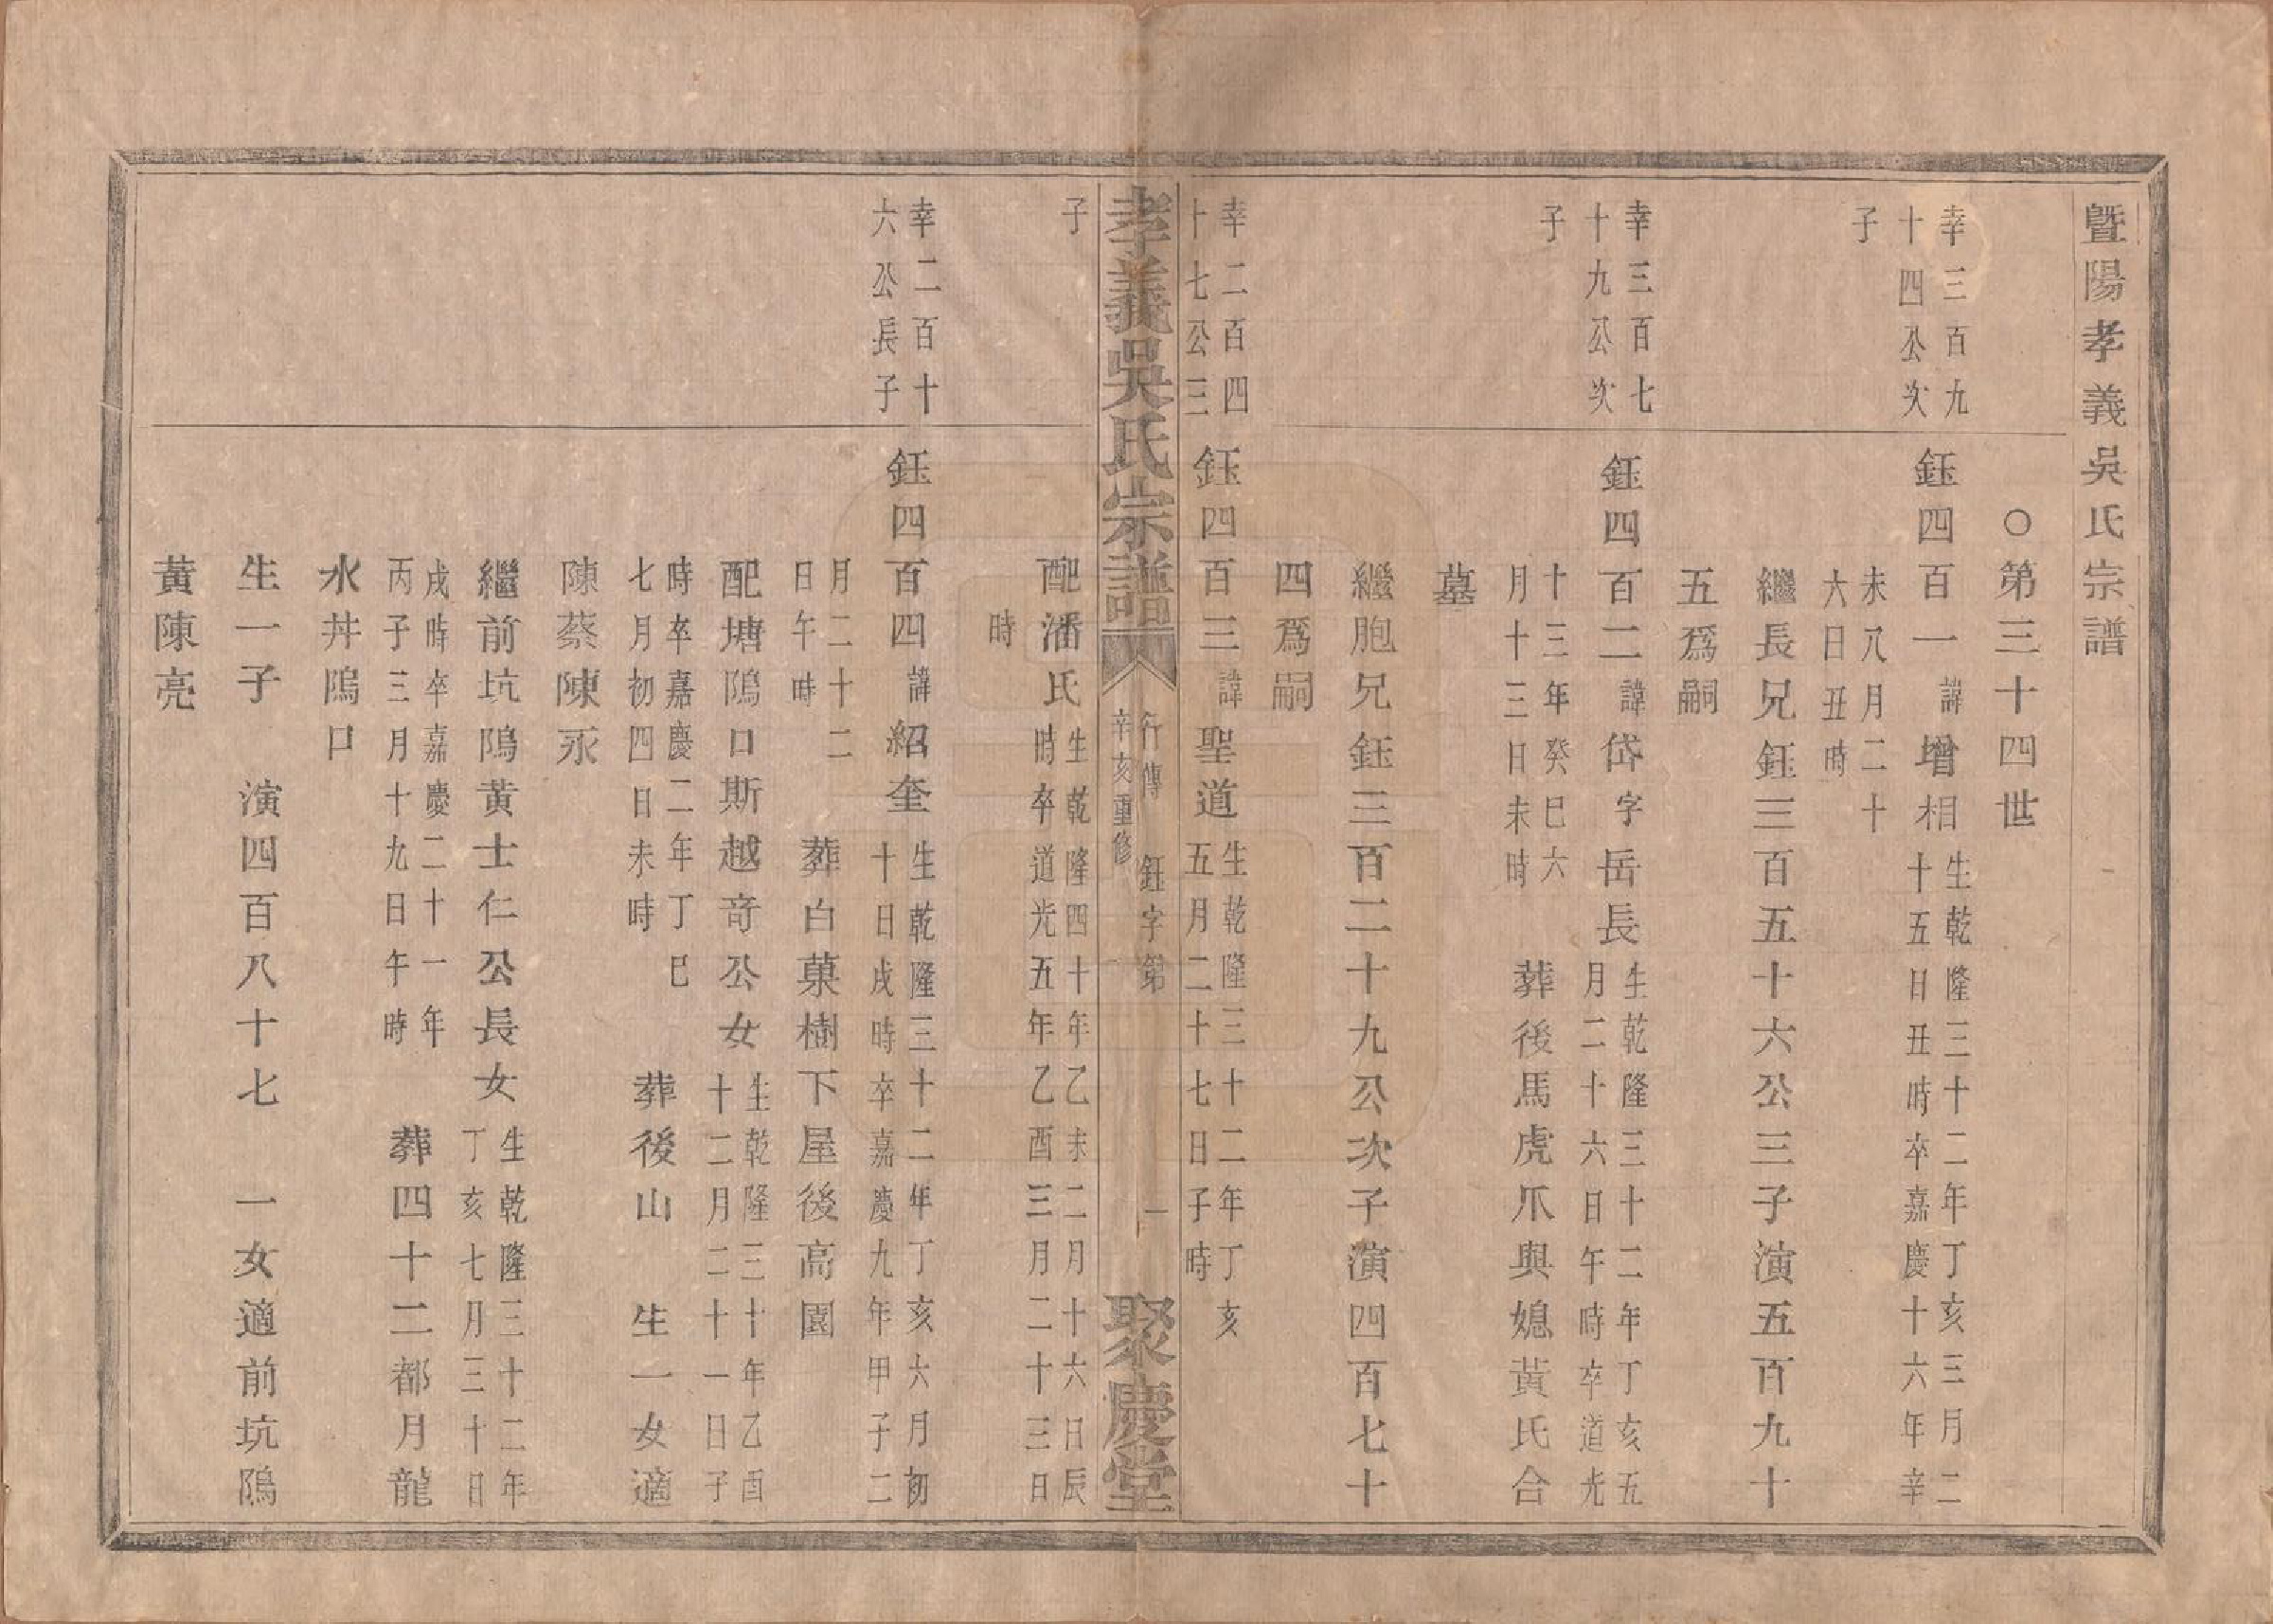 暨陽孝義吳氏宗譜
○第三十四世
幸三百九
十四公次
子
鈺四百一諱增相
生乾隆三十二年丁亥三月二
十五日丑時卒嘉慶十六年辛
未八月二十
六日丑時
繼長兄鈺三百五十六公三子演五百九十
五爲嗣
幸三百七
十九公次
子
鈺四百二諱岱字岳長
生乾隆三十二年丁亥五
月二十六日午時卒道光
十三年癸巳六
月十三日未時
葬後馬虎爪與媳黃氏合
墓
繼胞兄鈺三百二十九公次子演四百七十
四爲嗣
幸二百四
十七公三
鈺四百三諱聖道
生乾隆三十二年丁亥
五月二十七日子時
孝義吳氏宗譜
行傳 鈺字第 一
辛亥重修
聚慶堂
子
配潘氏
生乾隆四十年乙未二月十六日辰
時卒道光五年乙酉三月二十三日
時
幸二百十
六公長子
鈺四百四諱紹奎
生乾隆三十二年丁亥六月初
十日戌時卒嘉慶九年甲子二
月二十二
日午時
葬白菓樹下屋後高園
配塘隖口斯越奇公女
生乾隆三十年乙酉
十二月二十一日子
時卒嘉慶二年丁巳
七月初四日未時
葬後山 生一女適
陳蔡陳永
繼前坑隖黃士仁公長女
生乾隆三十二年
丁亥七月三十日
戌時卒嘉慶二十一年
丙子三月十九日午時
葬四十二都月龍
水丼隖口
生一子 演四百八十七 一女適前坑隖
黃陳亮